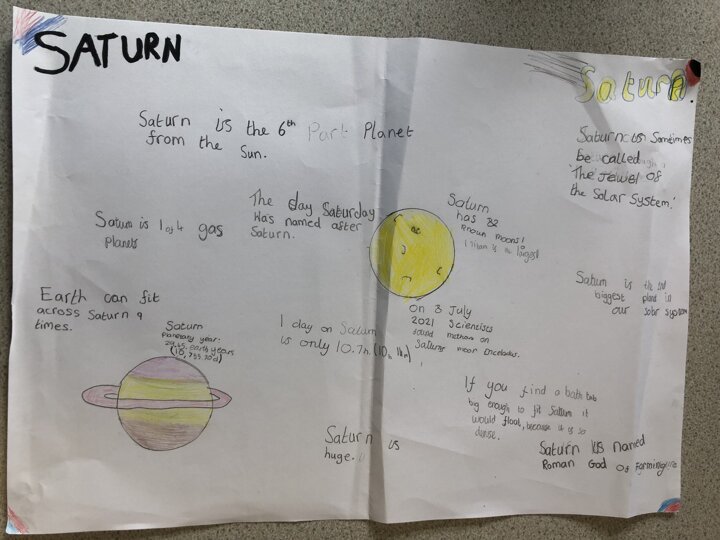 SATURN
Saturn
Saturn is the 6th Part Planet
from the Sun.
Saturn is Somtimes
be called
'The Jewel Of
the Solar System.'
The day Saturday
Was named after
Saturn.
Saturn
has 82
known moons!
(Titan is the largest)
Saturn is 1 of 4 gas
planets
Saturn is the 2nd
biggest planet in
our solar system
Earth can fit
across Saturn 9
times.
Saturn
Planetary year:
earth years
1 day on Saturn
is only 10.7h
On 8 July
2021 Scientists
found methane on
Saturns moon Enceladus.
If you find a bath tub
big enough to fit Saturn it
would float, because it is so
dense.
Saturn is
huge.
Saturn is named
Roman God Of Farming